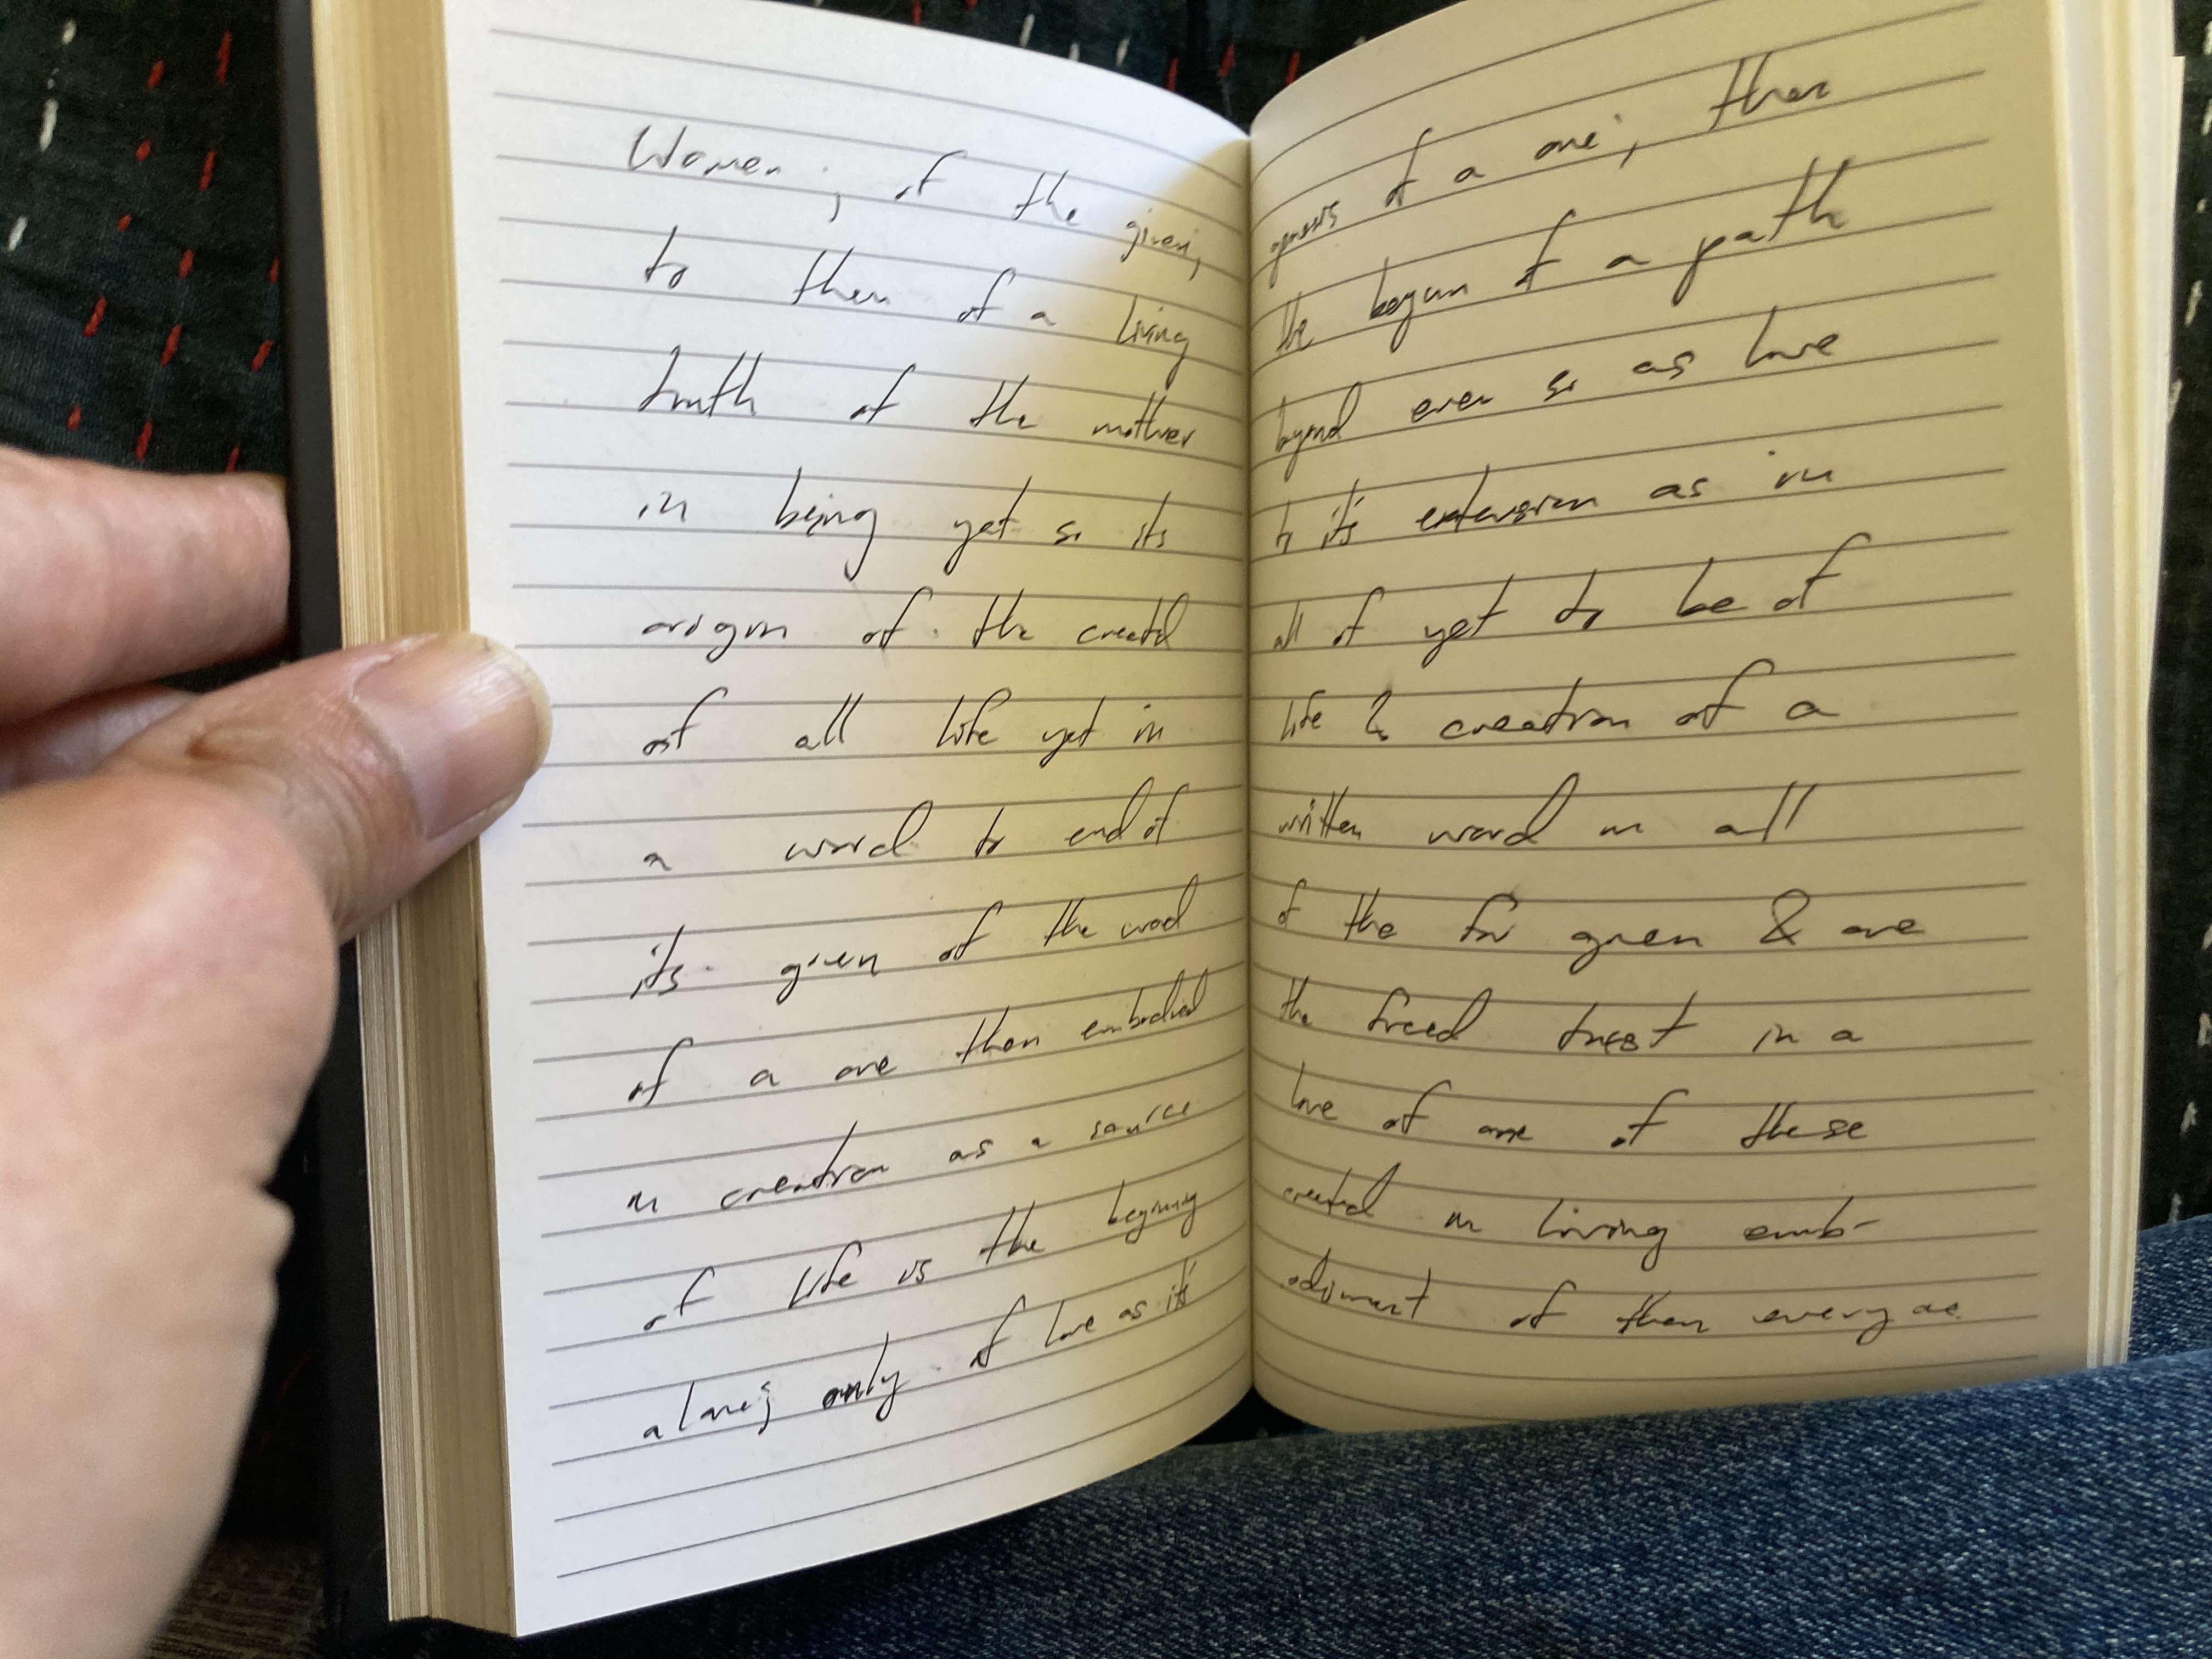 Women; of the given,
to then of a living
truth of the mother
in being yet so its
origin of the created
of all life yet in
a word to end of
its given of the word
of a one then embodied
in creation as a source
of life is the begining
alone; only of love as it's
genesis of a one', then
the begun of a path
beyond even so as love
to it's extension as in
all of yet to be of
life & creation of a
written word in all
of the for given & one
the freed trust in a
love of one of these
created in living emb-
odiment of then every one